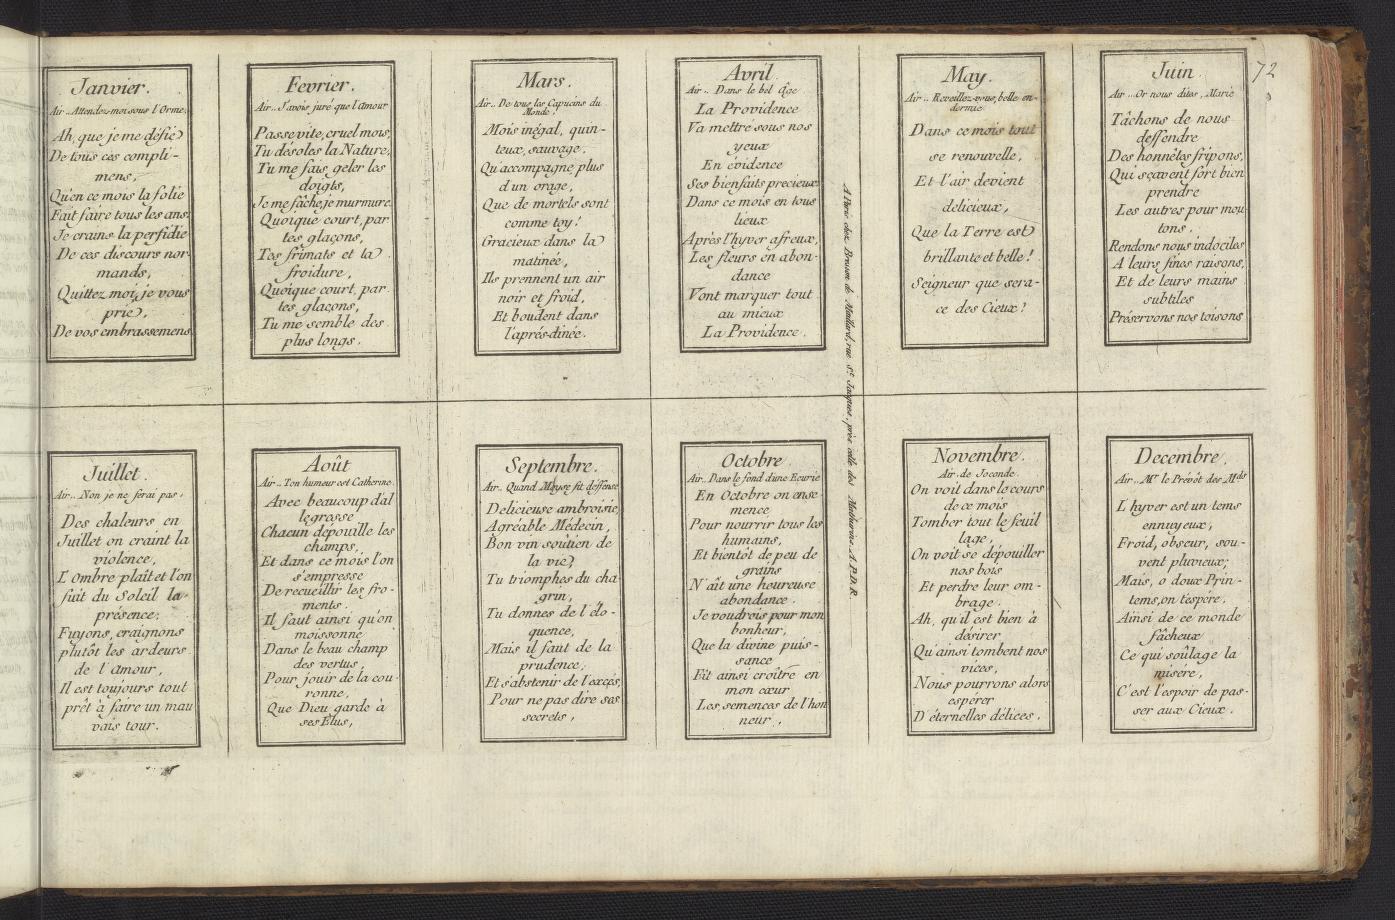 72
Janvier.
Air.. Attendez-moi sous l'Orme.
Ah, que je me défie
De tous ces compli-
mens,
Qu'en ce mois la folie
Fait faire tous les ans.
Je crains la perfidie
De ces discours nor-
mands,
Quittez moi, je vous
prie,
De vos embrassemens
Fevrier.
Air.. J'avois juré que l'Amour
Passe vite, cruel mois,
Tu désoles la Nature,
Tu me fais geler les
doigts,
Je me fâche, je murmure.
Quoique court, par
tes glaçons,
Tes frimats et ta
froidure,
Quoique court, par
tes glaçons,
Tu me semble des
plus longs.
Mars.
Air.. De tous les Capucins du
Monde.
Mois inégal, quin-
teux, sauvage,
Qu'accompagne plus
d'un orage,
Que de mortels sont
comme toy!
Gracieux dans la
matinée,
Ils prennent un air
noir et froid,
Et boudent dans
l'aprés-dinée.
Avril.
Air.. Dans le bel âge
La Providence
Va mettre sous nos
yeux
En évidence
Ses bienfaits precieux
Dans ce mois en tous
lieux
Après l'hyver afreux,
Les fleurs en abon-
dance
Vont marquer tout
au mieux
La Providence.
May.
Air.. Reveillez-vous, belle en-
dormie
Dans ce mois tout
se renouvelle,
Et l'air devient
delicieux,
Que la Terre est
brillante et belle!
Seigneur que sera-
ce des Cieux?
Juin.
Air... Or nous dites, Marie
Tâchons de nous
deffendre
Des honnêtes fripons,
Qui sçavent fort bien
prendre
Les autres pour mou-
tons.
Rendons nous indociles
A leurs fines raisons,
Et de leurs mains
subtiles
Préservons nos toisons
A Paris chez Basson de Maillard, rue St. Jacques, près celle des Mathurins. A.P.D.R.
Juillet.
Air.. Non je ne ferai pas.
Des chaleurs en
Juillet on craint la
violence,
L'Ombre plaît et l'on
fuit du Soleil la
présence;
Fuyons, craignons
plutôt les ardeurs
de l'Amour,
Il est toujours tout
prêt à faire un mau
vais tour.
Août
Air.. Ton humeur est Catherine.
Avec beaucoup d'al
legresse
Chacun dépouille les
champs,
Et dans ce mois l'on
s'empresse
De recueillir les fro-
ments.
Il faut ainsi qu'on
moissonne
Dans le beau champ
des vertus,
Pour jouir de la cou-
ronne,
Que Dieu garde à
ses Elus,
Septembre.
Air.. Quand Moyse fit deffense
Delicieuse ambroisie,
Agréable Médecin,
Bon vin soûtien de
la vie,
Tu triomphes du cha
grin,
Tu donnes de l'élo-
quence,
Mais il faut de la
prudence,
Et s'abstenir de l'excés,
Pour ne pas dire ses
secrets,
Octobre
Air.. Dans le fond d'une Ecurie
En Octobre on ense
mence
Pour nourrir tous les
humains,
Et bientôt de peu de
grains
N'aît une heureuse
abondance.
Je voudrois pour mon
bonheur,
Que la divine puis-
sance
Fit ainsi croître en
mon cœur
Les semences de l'hon
neur,
Novembre.
Air.. de Joconde.
On voit dans le cours
de ce mois
Tomber tout le feuil
lage,
On voit se dépouiller
nos bois
Et perdre leur om-
brage.
Ah, qu'il est bien à
désirer
Qu'ainsi tombent nos
vices,
Nous pourrons alors
espérer
D'éternelles délices.
Decembre.
Air.. Mr. le Prévôt des Mds
L'hyver est un tems
ennuyeux,
Froid, obscur, sou-
vent pluvieux;
Mais, o doux Prin-
tems, on t'espére,
Ainsi de ce monde
fâcheux
Ce qui soûlage la
misére,
C'est l'espoir de pas-
ser aux Cieux.